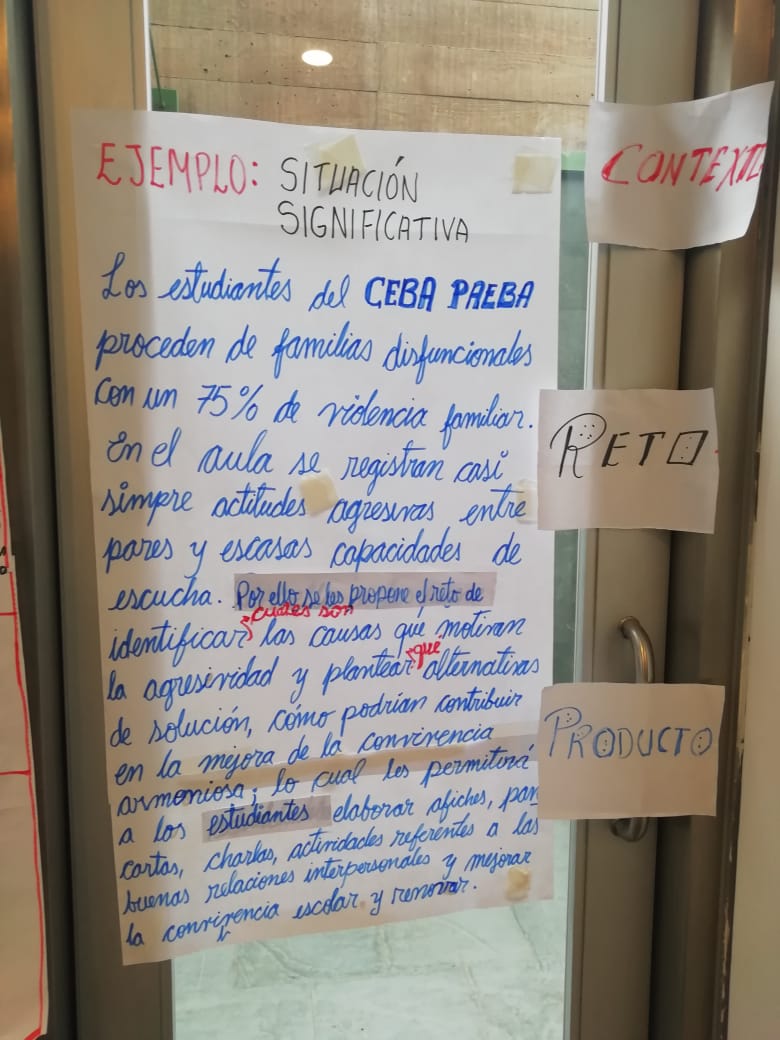 EJEMPLO: SITUACIÓN
SIGNIFICATIVA
Los estudiantes del CEBA PAEBA
proceden de familias disfuncionales
con un 75% de violencia familiar.
En el aula se registran casi
simpre actitudes agresivas entre
pares y escasas capacidades de
escucha. Por ello se les propone el reto de
cuáles son
identificar las causas qué motivan
que
la agresividad y plantear alternativas
de solución, cómo podrían contribuir
en la mejora de la convivencia
armoniosa; lo cual les permitirá
a los estudiantes elaborar afiches, pan
cartas, charlas, actividades referentes a las
buenas relaciones interpersonales y mejorar
la convivencia escolar y renovar.
CONTEXTO
RETO
PRODUCTO